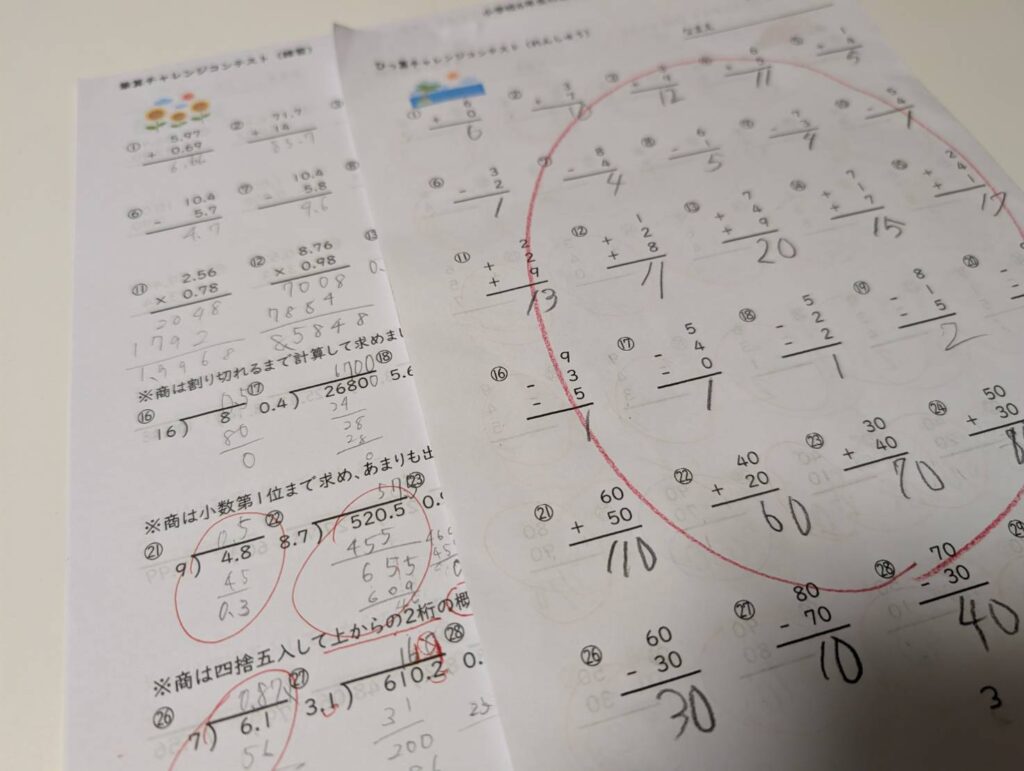 筆算チャレンジコンテスト（練習）
① 5.97 + 0.69 6.66
② 71.7 + 14 85.7
⑥ 10.4 - 5.7 4.7
⑦ 10.4 - 5.8 4.6
⑪ 2.56 × 0.78 2048 1792 1.9968
⑫ 8.76 × 0.98 7008 7884 8.5848
⑬
※商は割り切れるまで計算して求めまし
⑯ 16) 8 0.5 80 0
⑰ 0.4) 2680 6700 24 28 28 0
⑱ 5.6
※商は小数第1位まで求め、あまりも出
㉑ 9) 4.8 0.5 45 0.3
㉒ 8.7) 520.5 455 655 609
㉓
※商は四捨五入して上からの2桁の概
㉖ 7) 6.1 0.87 56
㉗ 3.1) 610.2 31 200
㉘
ひっ算チャレンジコンテスト（れんしゅう）
なまえ
① 6 + 0 6
② 3 + 7
③ + 12
④ + 11
⑤ 1 + 4 5
⑥ 3 - 2 1
⑦ 8 - 4 4
⑧ 6 - 1 5
⑨ 7 - 3 4
⑩ 5 - 4 1
⑪ 2 + 2 + 9 13
⑫ 1 + 2 + 8 11
⑬ 7 + 4 + 9 20
⑭ 7 + 1 + 7 15
⑮ 17
⑯ 9 - 3 - 5 1
⑰ 5 - 4 - 0 1
⑱ 5 - 2 - 2 1
⑲ 8 - 1 - 5 2
⑳
㉑ 60 + 50 110
㉒ 40 + 20 60
㉓ 30 + 40 70
㉔ 50 + 30
㉖ 60 - 30 30
㉗ 80 - 70 10
㉘ 70 - 30 40
㉙
3